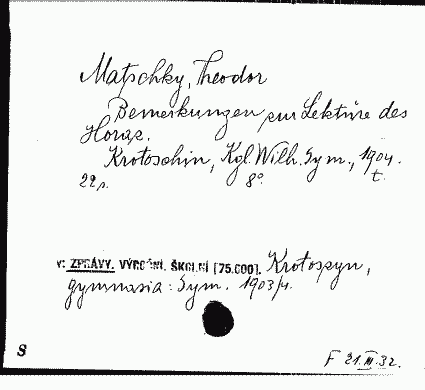 Matschky, Theodor
Bemerkungen zur Lektüre des
Horaz.
Krotoschin, Kgl. Wilh. Gym., 1904.
22 s. 8°. t.
v: ZPRÁVY. VÝROČNÍ. ŠKOLNÍ [75.600]. Krotoszyn,
gymnasia: Gym. 1903/4.
S
F 21.III.32.